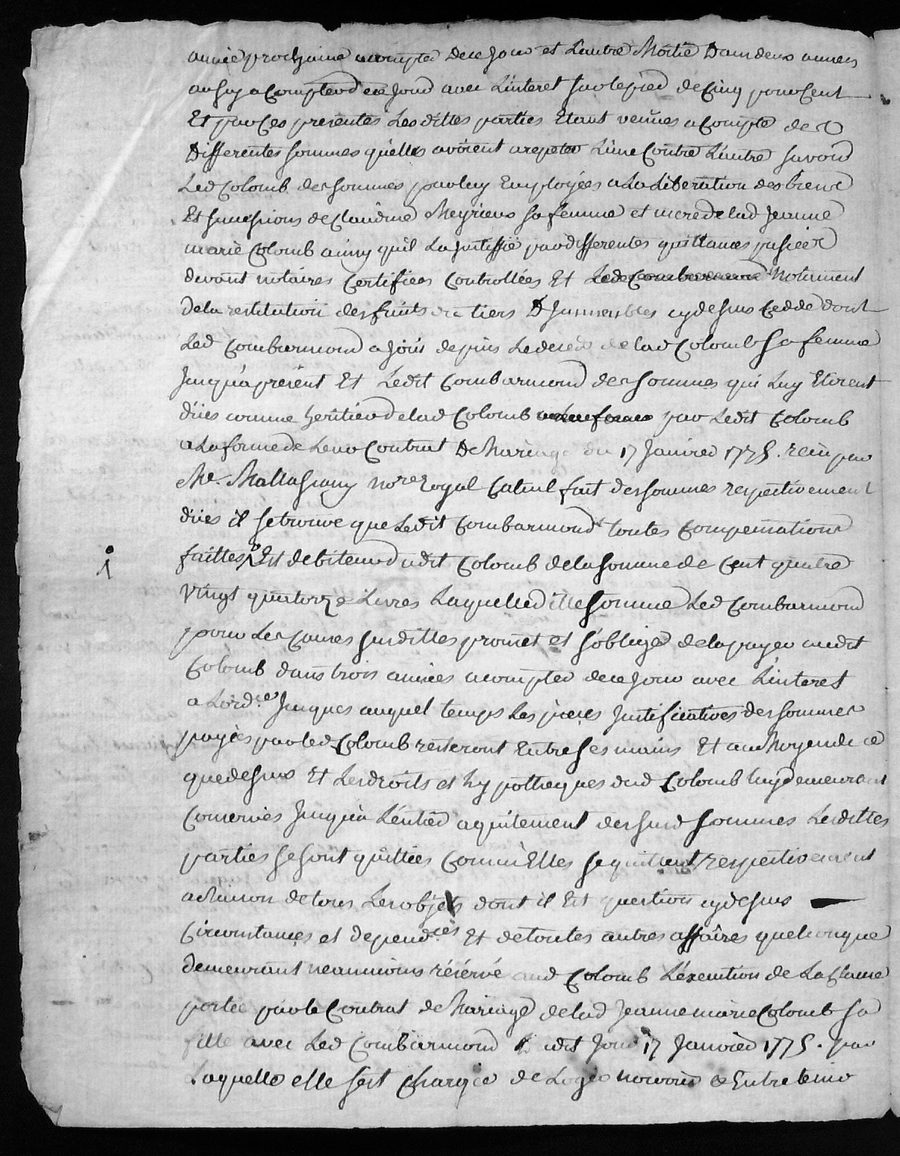 année prochaine a compter de ce Jour et Lautre Moitié Dans deux années
aussy a Compter de ce Jour avec L'interet sur le pied de Cinq pour Cent
Et par Ces presentes Lesdittes parties Etant venües a Compte de
Differentes sommes qu'elles avoient a repeter L'une Contre L'autre savoir
Led Colomb des sommes par luy Employées a La Liberation des biens
Et successions de Claudine Meyrieux sa femme et mere de lad Jeanne
marie Colomb ainsy qu'il La justiffié par differentes quittances passées
devant notaires Certifiées Controllées Et Led Combarmond notament
de la restitution des fruits du tiers D'Immeubles cy dessus Cedde dont
Led Combarmond a Joüi depuis Le deced de lad Colomb sa femme
Jusqu'a present Et Ledit Combarmond des sommes qui Luy Etoient
dües comme heritier de lad Colomb par Ledit Colomb
a La forme de Leur Contrat De Mariage du 17 Janvier 1775. reçu par
Me. nore Royal Calcul fait des sommes respectivement
dües il se trouve que Ledit Combarmond toutes Compensations
faittes Est debiteur dudit Colomb de la somme de Cent quatre
1
Vingt quatorze Livres Laquelle ditte somme Led Combarmond
pour Les causes susdittes promet et s'oblige de la payer audit
Colomb dans trois années a compter de ce Jour avec L'interet
a L'ordre. Jusques auquel temps Les pieces Justificatives des sommes
payées par led Colomb resteront Entre ses mains Et au Moyen de ce
que dessus Et Les droits et hypotheques dud Colomb luy demeurant
Conservés Jusqu'a L'entier aquitement des susd sommes Lesdittes
parties se sont quittées Comm'Elles se quittent respectivement
a raison de tous Les objets dont il Est question cy dessus
Circonstances et dependces. Et de toutes autres affaires quelconque
demeurant neanmoins réservé aud Colomb L'execution de La Clause
portée par le Contrat de Mariage de lad Jeanne marie Colomb sa
fille avec Led Combarmond dudit Jour 17 Janvier 1775. par
Laquelle elle s'est Chargée de Loger nourrir & Entretenir